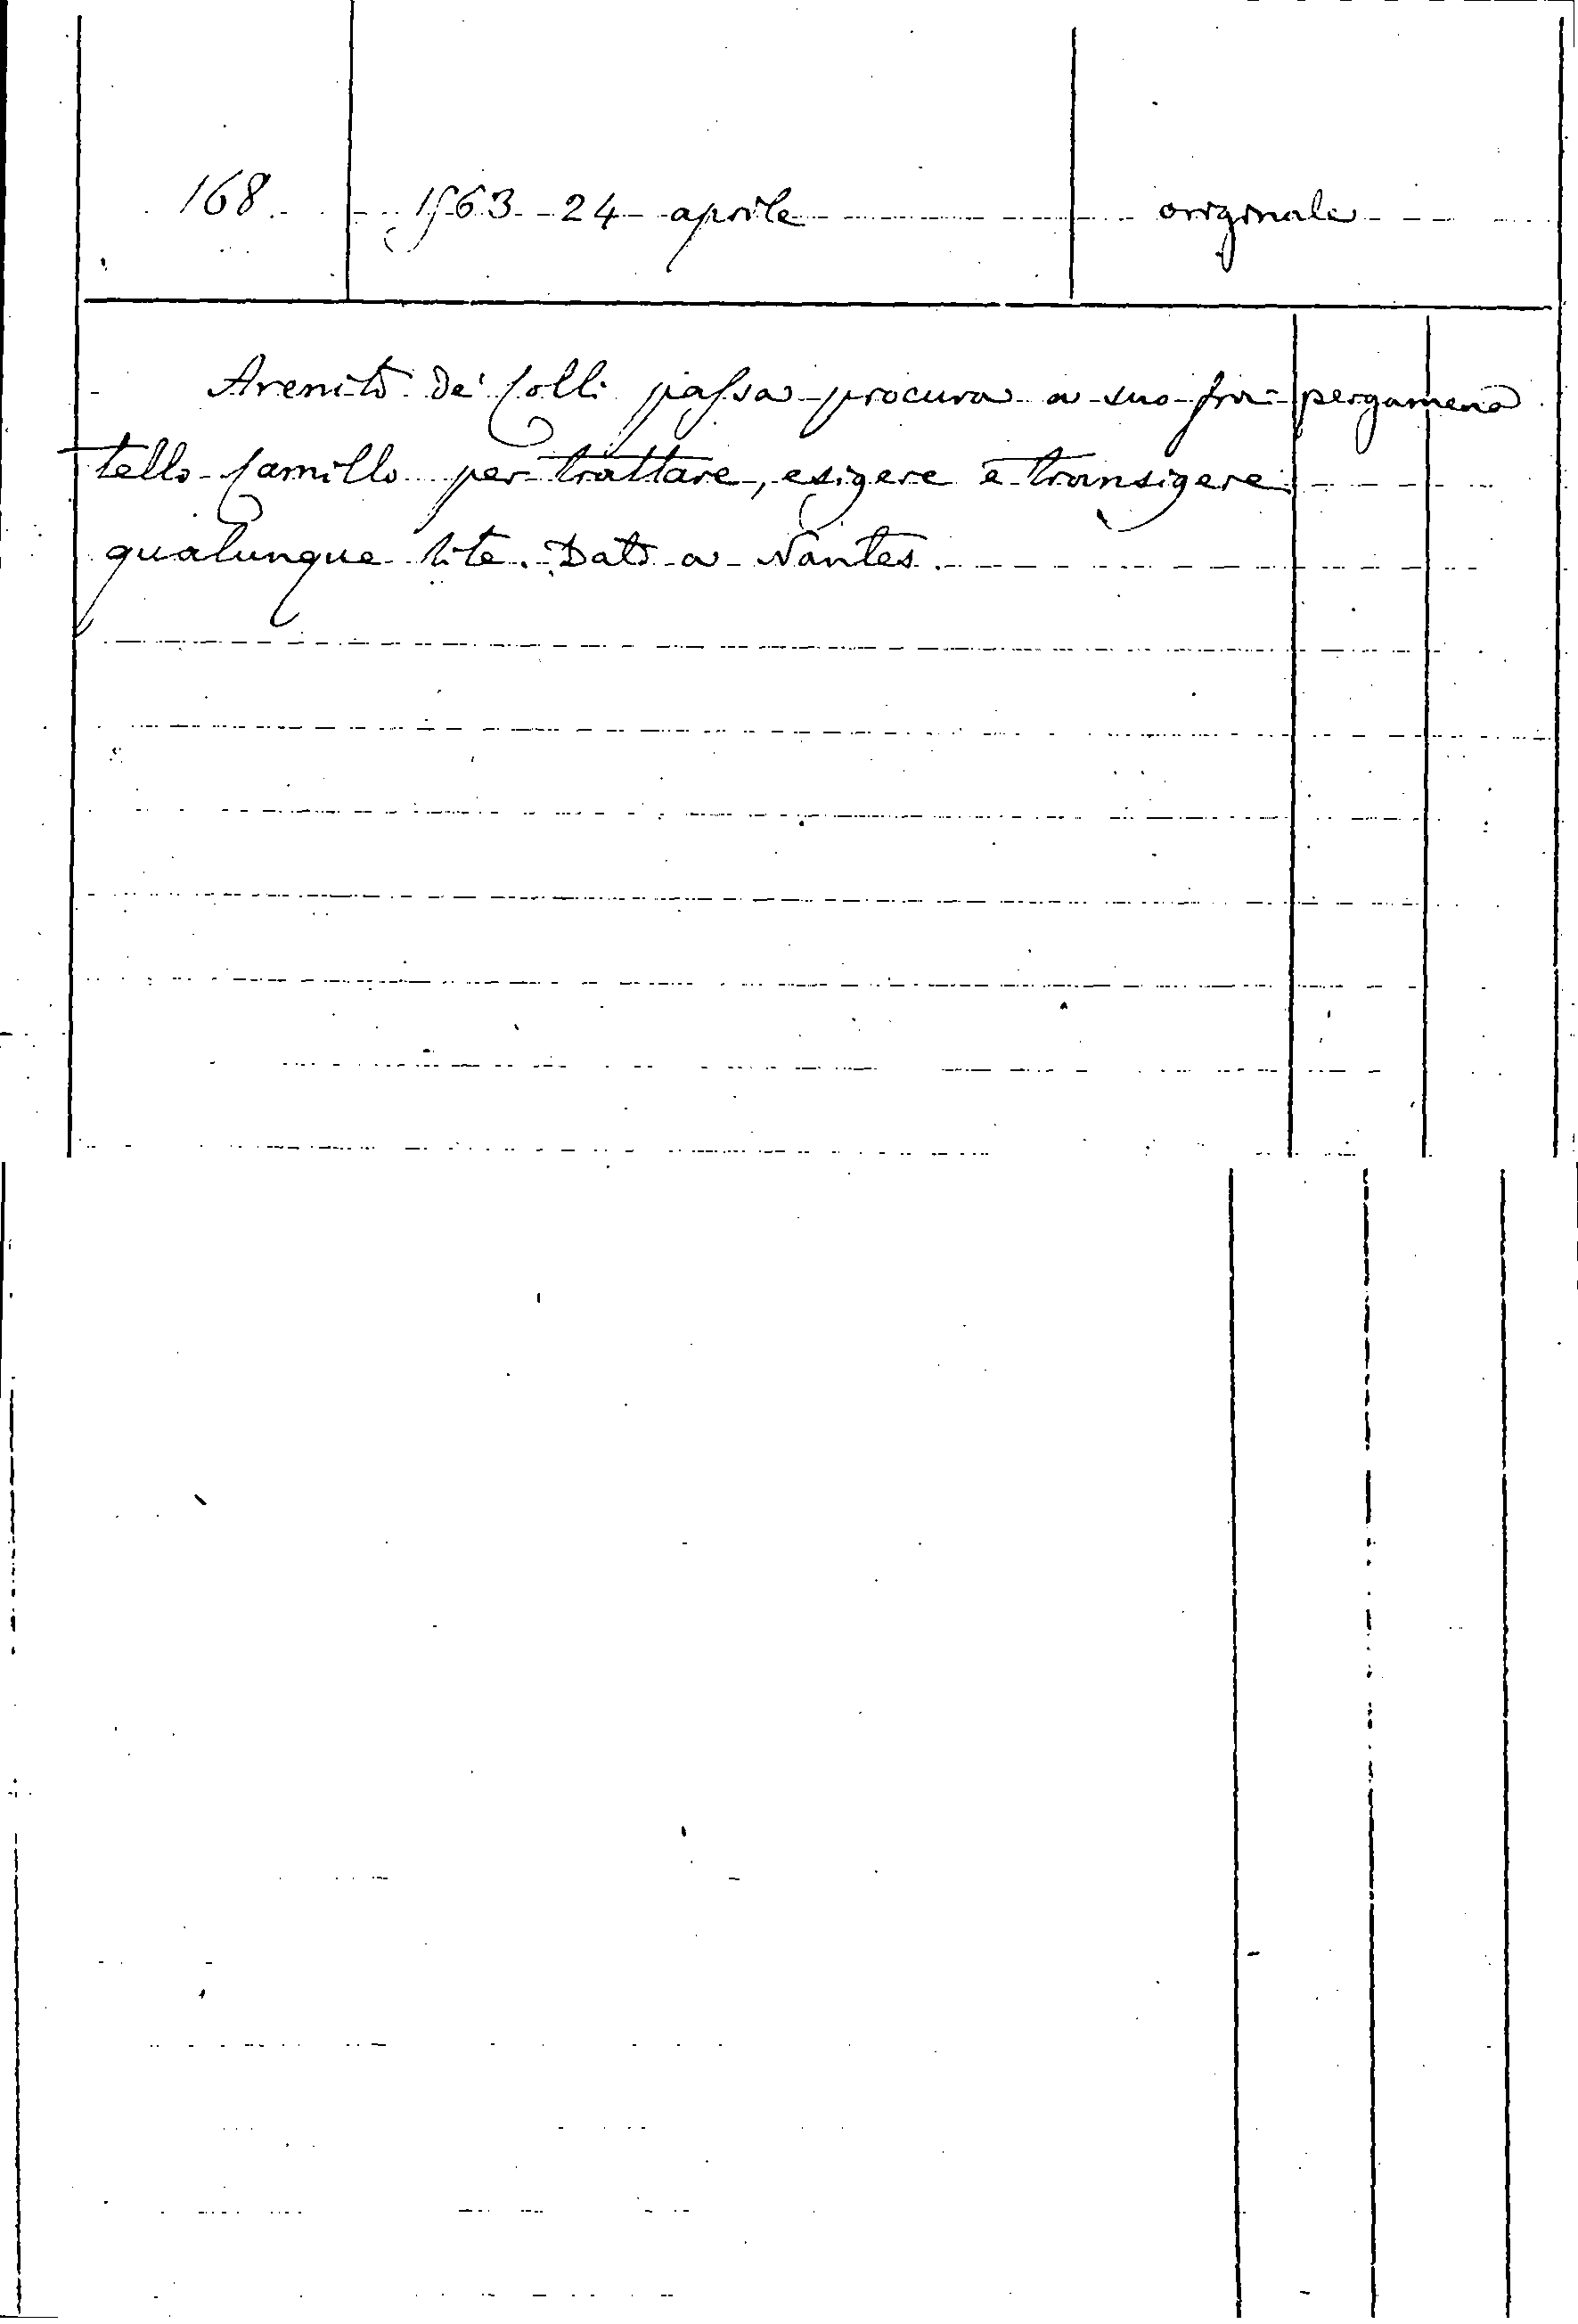 168 1563 24 aprile originale
Arenito de' Colli passa procura a suo fra- pergamena
tello Camillo per trattare, esigere e transigere
qualunque lite. Dato a Nantes.